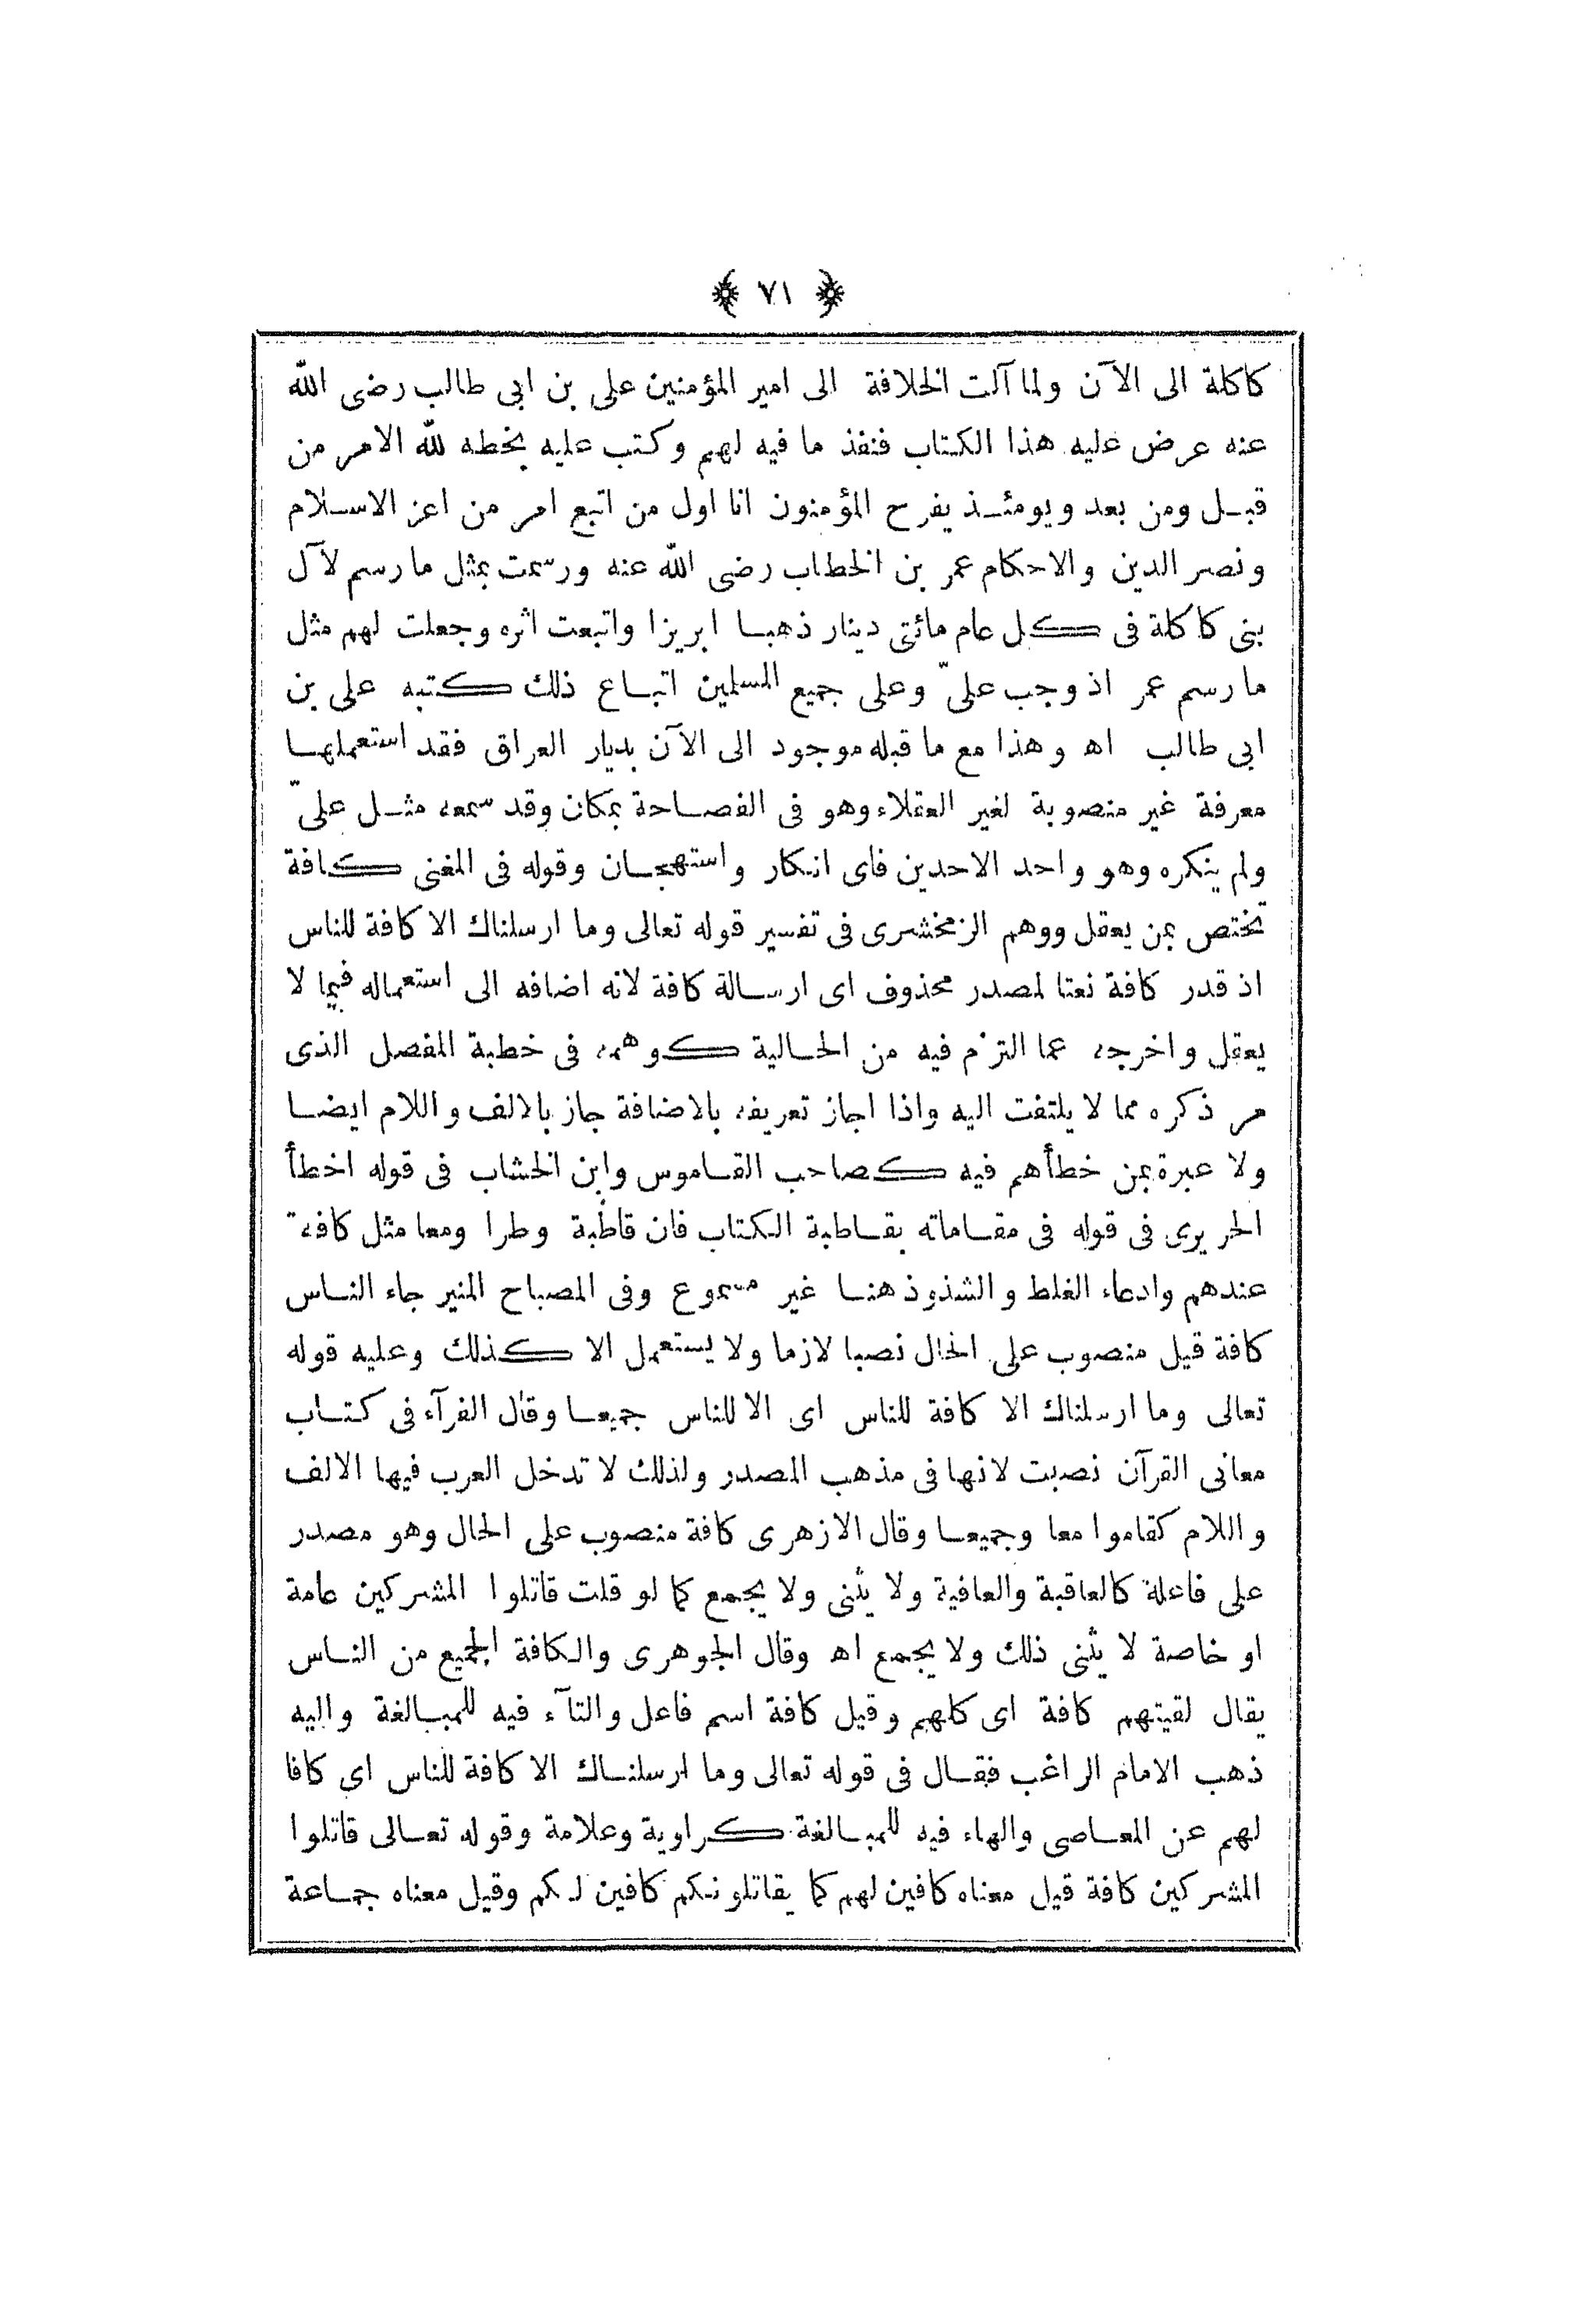 ﴿ ٧١ ﴾
كاكلة الى الآن ولما آلت الخلافة الى امير المؤمنين على بن ابى طالب رضى الله
عنه عرض عليه هذا الكتاب فنفذ ما فيه لهم وكتب عليه بخطه لله الامر من
قبل ومن بعد ويومئذ يفرح المؤمنون انا اول من اتبع امر من اعز الاسلام
ونصر الدين والاحكام عمر بن الخطاب رضى الله عنه ورسمت بمثل ما رسم لآل
بنى كاكلة فى كل عام مائتى دينار ذهبا ابريزا واتبعت اثره وجعلت لهم مثل
ما رسم عمر اذ وجب علىّ وعلى جميع المسلين اتباع ذلك كتبه على بن
ابى طالب اه وهذا مع ما قبله موجود الى الآن بديار العراق فقد استعملها
معرفة غير منصوبة لغير العقلاء وهو فى الفصاحة بمكان وقد سمعه مثل علىّ
ولم ينكره وهو واحد الاحدين فاى انكار واستهجان وقوله فى المغنى كافة
تختص بمن يعقل ووهم الزمخشرى فى تفسير قوله تعالى وما ارسلناك الا كافة للناس
اذ قدر كافة نعتا لمصدر محذوف اى ارسالة كافة لانه اضافه الى استعماله فيما لا
يعقل واخرجه عما التزم فيه من الحالية كوهمه فى خطبة المفصل الذى
مر ذكره مما لا يلتفت اليه واذا اجاز تعريفه بالاضافة جاز بالالف واللام ايضا
ولا عبرة بمن خطأهم فيه كصاحب القاموس وابن الخشاب فى قوله اخطأ
الحريرى فى قوله فى مقاماته بقاطبة الكتاب فان قاطبة وطرا ومعا مثل كافة
عندهم وادعاء الغلط والشذوذ هنا غير مسموع وفى المصباح المنير جاء الناس
كافة قيل منصوب على الحال نصبا لازما ولا يستعمل الا كذلك وعليه قوله
تعالى وما ارسلناك الا كافة للناس اى الا للناس جميعا وقال الفرآء فى كتاب
معانى القرآن نصبت لانها فى مذهب المصدر ولذلك لا تدخل العرب فيها الالف
واللام كقاموا معا وجميعا وقال الازهرى كافة منصوب على الحال وهو مصدر
على فاعلة كالعاقبة والعافية ولا يثنى ولا يجمع كما لو قلت قاتلوا المشركين عامة
او خاصة لا يثنى ذلك ولا يجمع اه وقال الجوهرى والكافة الجميع من الناس
يقال لقيتهم كافة اى كلهم وقيل كافة اسم فاعل والتآء فيه للمبالغة واليه
ذهب الامام الراغب فقال فى قوله تعالى وما ارسلناك الا كافة للناس اى كافا
لهم عن المعاصى والهاء فيه للمبالغة كراوية وعلامة وقوله تعالى قاتلوا
المشركين كافة قيل معناه كافين لهم كما يقاتلونكم كافين لكم وقيل معناه جماعة